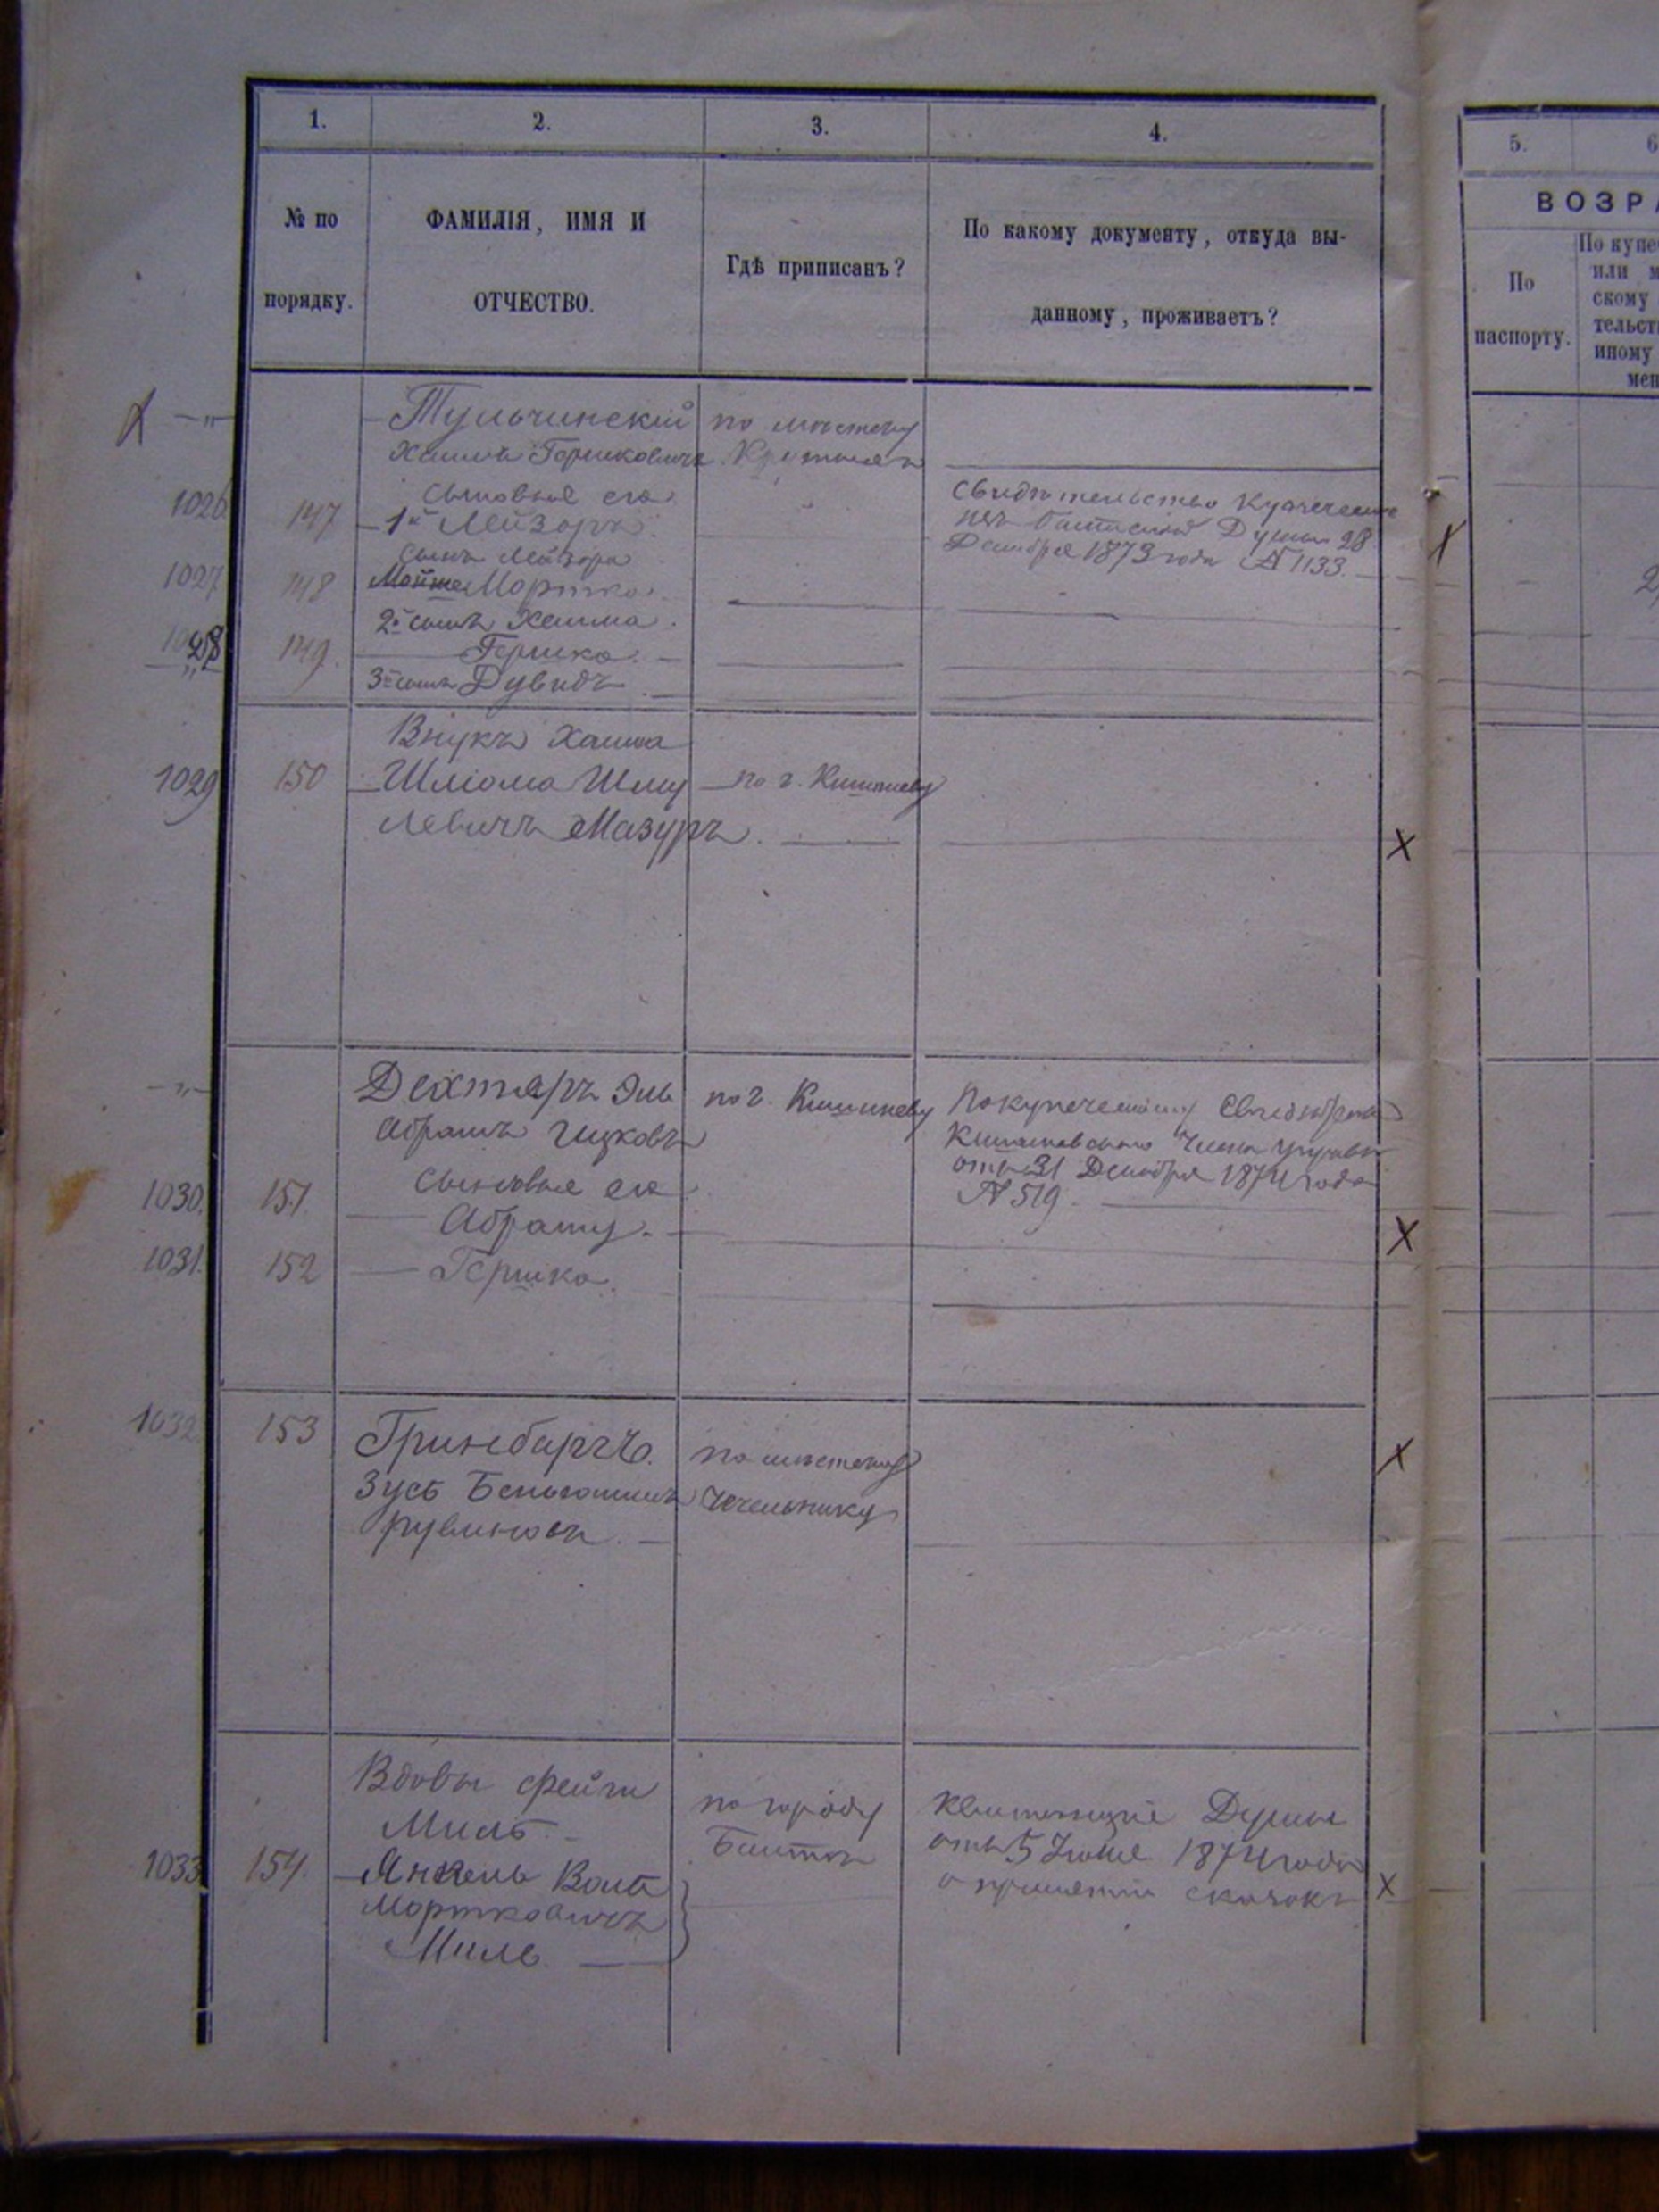 1.
2.
3.
4.
5.
6
№ по
порядку.
ФАМИЛІЯ, ИМЯ И
ОТЧЕСТВО.
Гдѣ приписанъ?
По какому документу, откуда вы-
данному, проживаетъ?
ВОЗРА
По
паспорту.
По купе
или м
скому
тельст
иному
мен
Тульчинскій
по мѣстечку
Хаимъ Гершковичъ
1026
147
Сыновья его
1й Лейзоръ
Свидѣтельство Купеческое
Балтской Думы 28
Декабря 1873 года № 1133.
1027
148
Сынъ Лейзора
Мойше Мортко
1028
149.
2й сынъ Хаима
Гершко.
3й сынъ Дувидъ
Внукъ Хаима
1029
150
Шліома Шму
по г. Кишиневу
левичъ Мазуръ.
Дехтяръ Эль
Абрамъ Ицковъ
по г. Кишиневу
По купеческому Свидѣтельству
Кишиневской управы
отъ 31 Декабря 1874 года
№ 519.
1030.
151.
Сыновья его
Абрамъ.
1031.
152
Гершко.
1032.
153
Гринбаргъ.
Зусь Беньюминъ
Рувиновъ.
по мѣстечку
Чечельнику
Вдовы Фейги
Миль.
1033
154.
Янкель Волько
Мортковичъ
Миль
по городу
Балтѣ
Квитанція Думы
отъ 5 Іюня 1874 года
о принятіи сказокъ